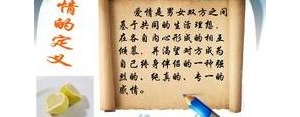 情的定义
爱情是男女双方之间
基于共同的生活理想，
在各自内心形成的相互
倾慕，并渴望对方成为
自己终身伴侣的一种强
烈的、纯真的、专一的
感情。